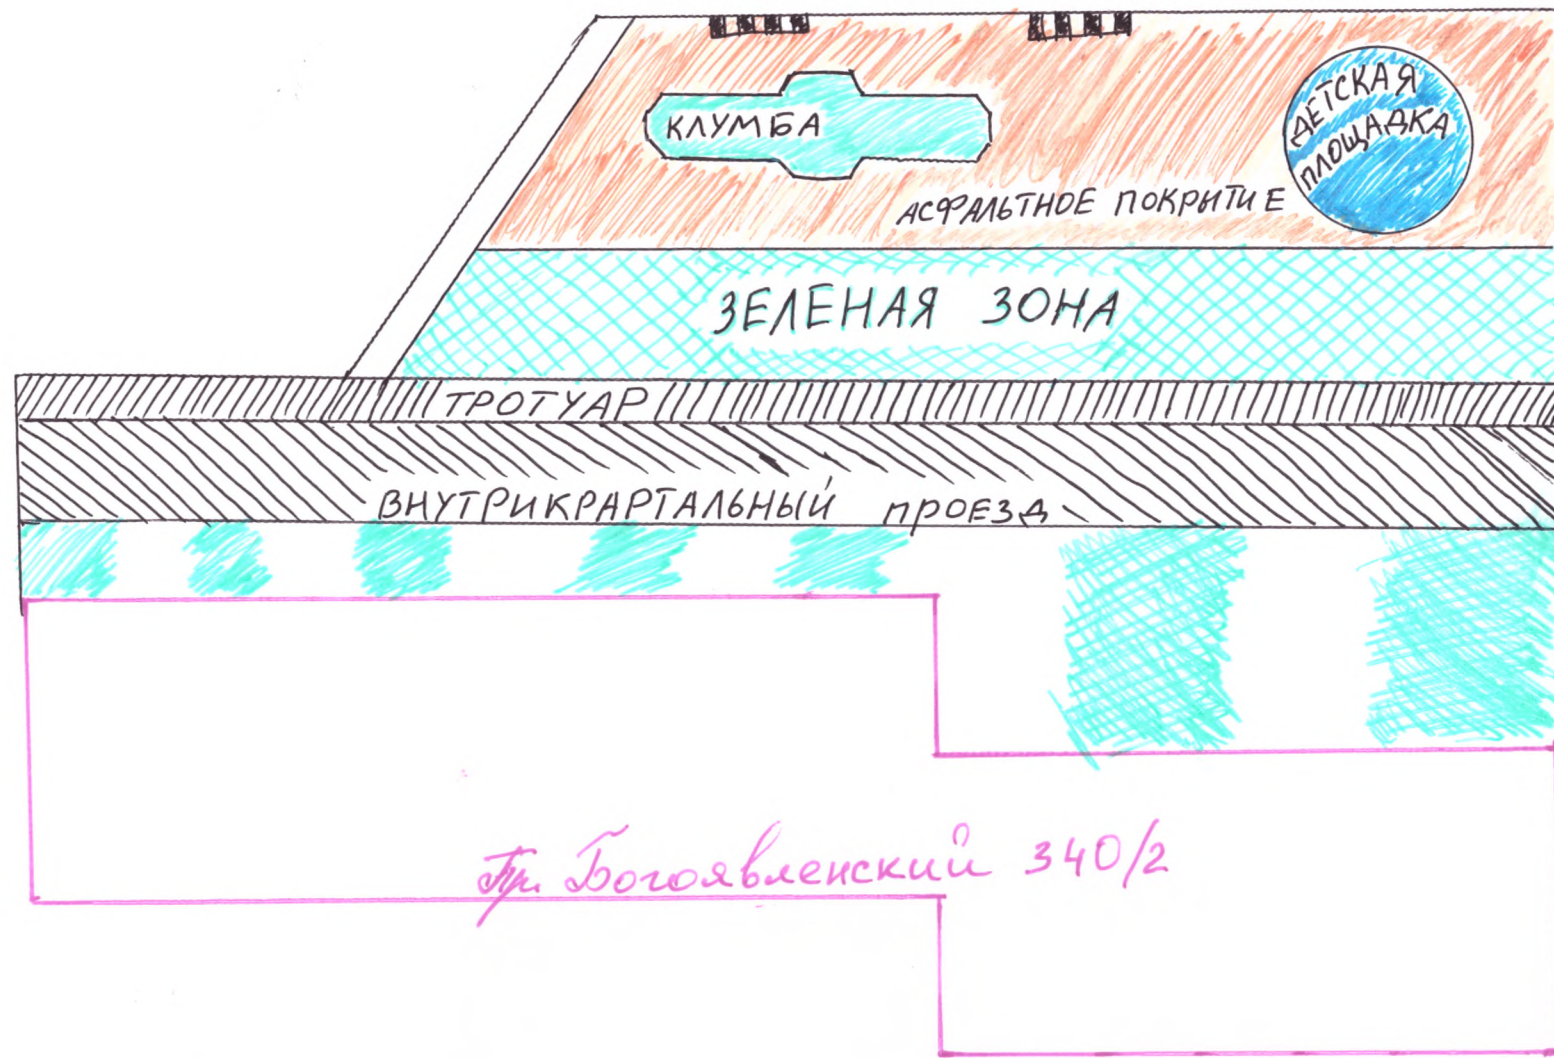 КЛУМБА
ДЕТСКАЯ
ПЛОЩАДКА
АСФАЛЬТНОЕ ПОКРЫТИЕ
ЗЕЛЕНАЯ ЗОНА
ТРОТУАР
ВНУТРИКРАРТАЛЬНЫЙ ПРОЕЗД
Пр. Богоявленский 340/2